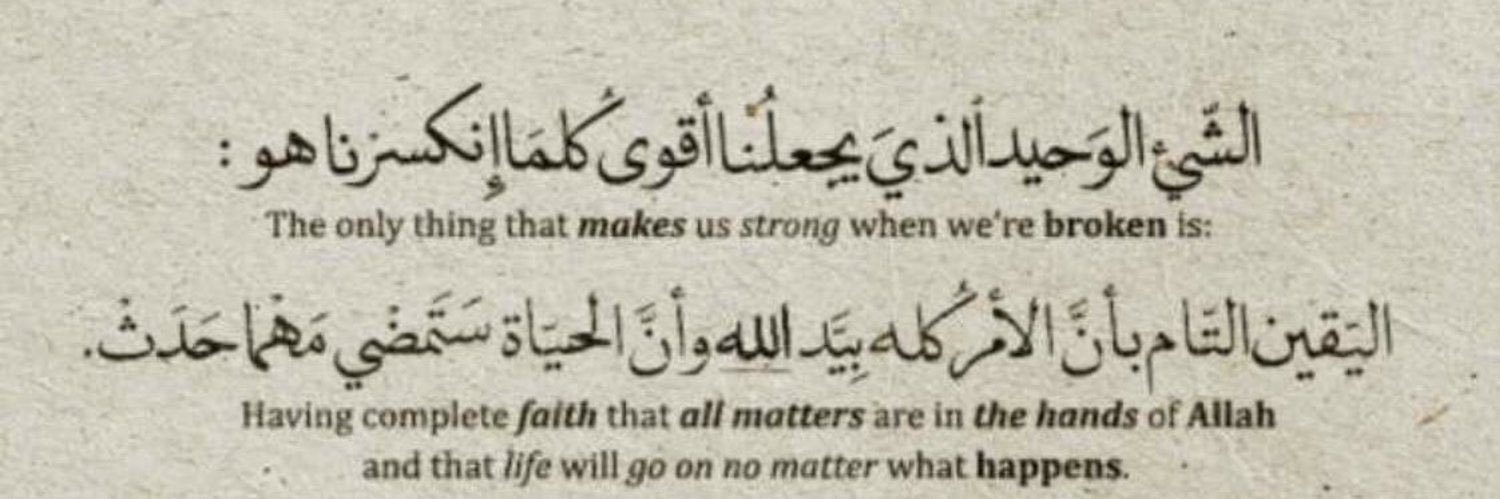 الشّيء الوَحيد ألذيَ يجعلُنا أقوى كُلمَا إنكسرنا هو :
The only thing that makes us strong when we're broken is:
اليَقين التَام بأنَّ الأمْر كُله بِيَد الله وأنَّ الحيَاة سَتَمضْي مَهْما حَدَثْ.
Having complete faith that all matters are in the hands of Allah
and that life will go on no matter what happens.